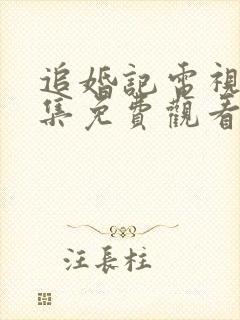 追婚記電視
集免費觀看
汪長柱